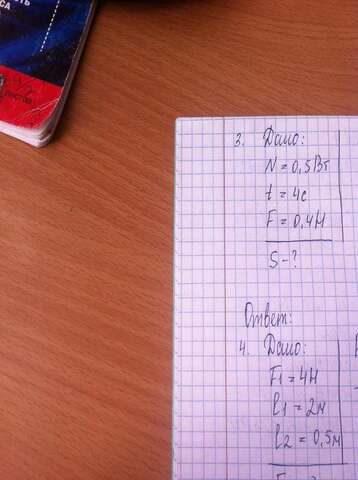 3. Дано:
N = 0,5Вт
t = 4с
F = 0,4Н
S - ?
Ответ:
4. Дано:
F1 = 4Н
l1 = 2м
l2 = 0,5м